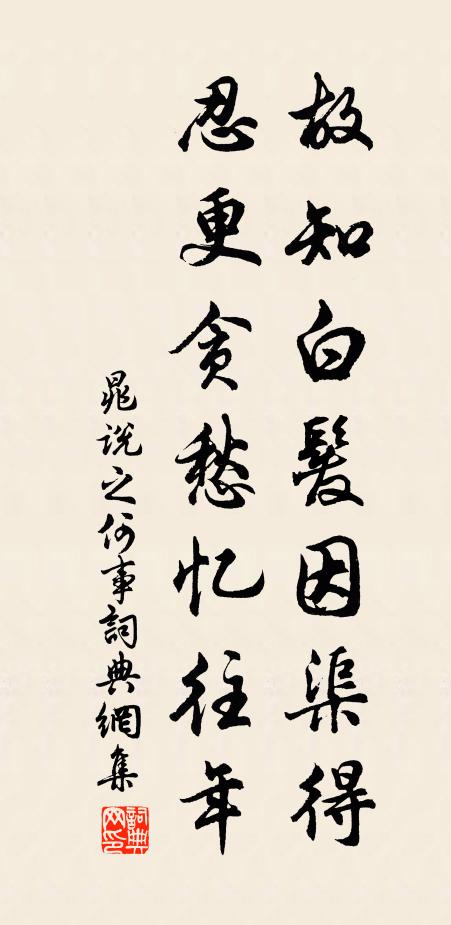 故知白髮因渠得
忍更貪愁忆往年
晁說之何事詞典網集
詞典網印